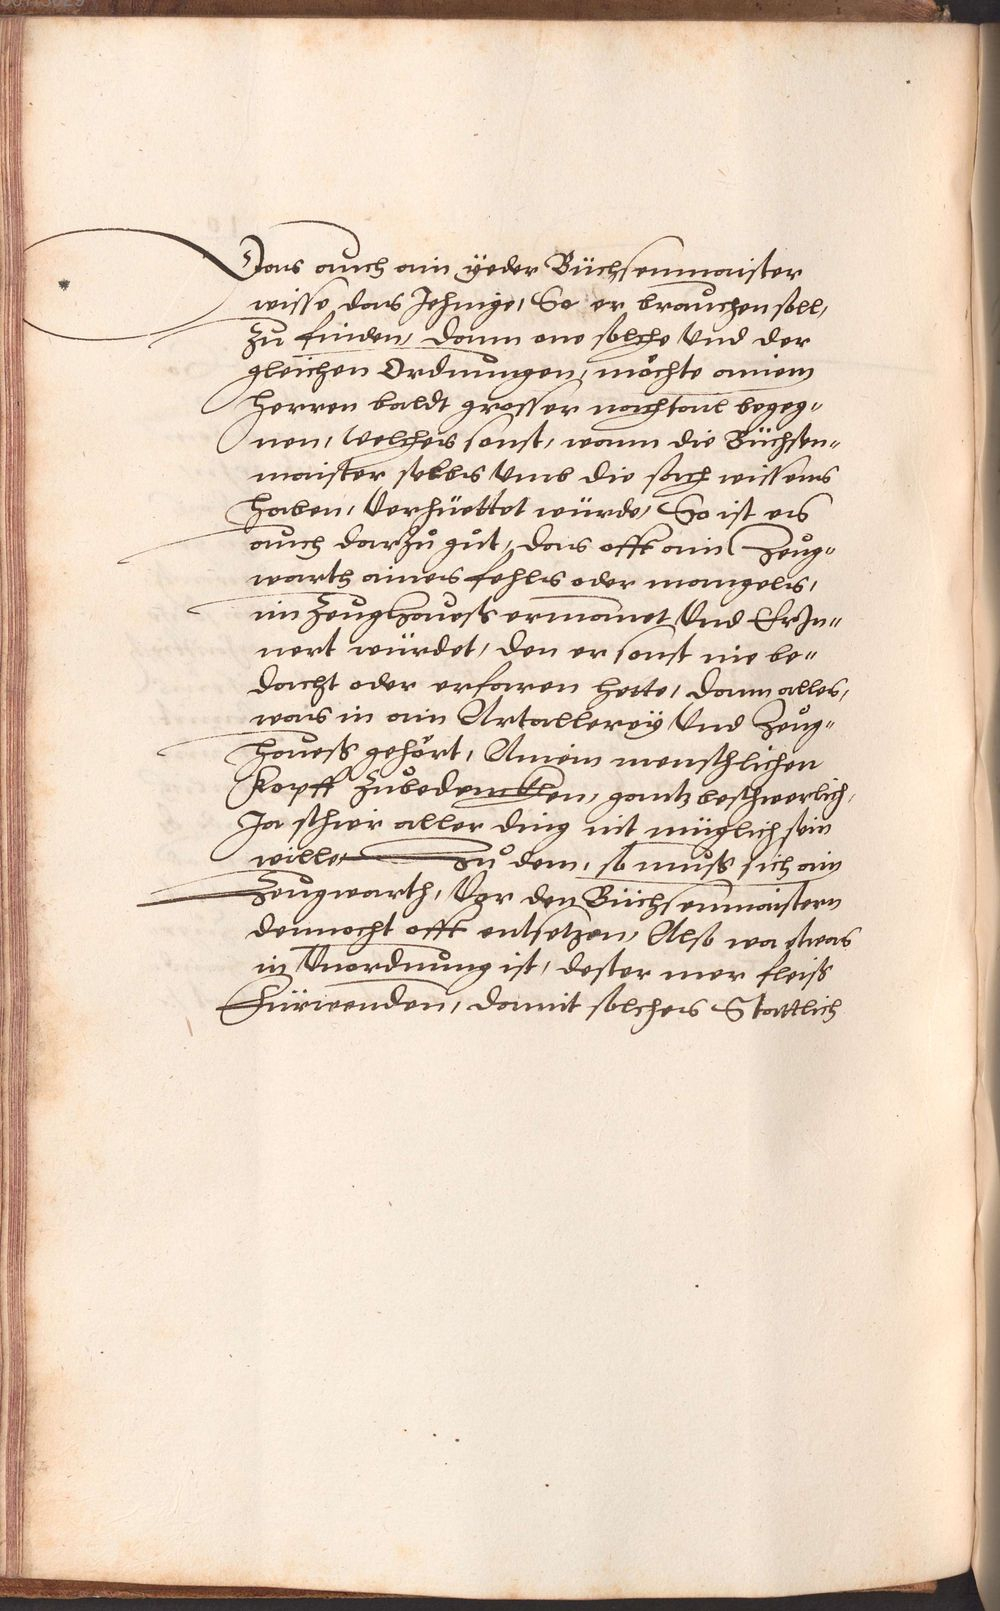 Das auch ain yeder Büchsenmaister
wisse das Jehnige, So er brauchen soll,
zu finden, dann one solche Vnd der
gleichen Ordnungen, möchte ainem
Herren baldt grosser nachtail begeg„
nen, Welches sonst, wann die Büchsen„
maister selbs Vmb die sach wissens
haben, Verhüettet würde, So ist es
auch darzů gůt, das offt ain Zeug„
warth aines fehls oder mangels,
im Zeughauß ermanet Vnd Er Jn„
nert würdet, den er sonst nie be„
dacht oder erfaren hette, dann alles,
was in ain Artallerey Vnd Zeug„
hauß gehört, Ainem menschlichen
Kopff zůbedencken, gantz beschwerlich,
Ja schier aller ding nit müglich sein
wille, Zů dem, so můß sich ain
Zeugwarth, Vor den Büchsenmaistern
dennocht offt entsetzen, Also wa etwas
in Vnordnung ist, dester mer fleiß
Fürwenden, damit solches Stattlich